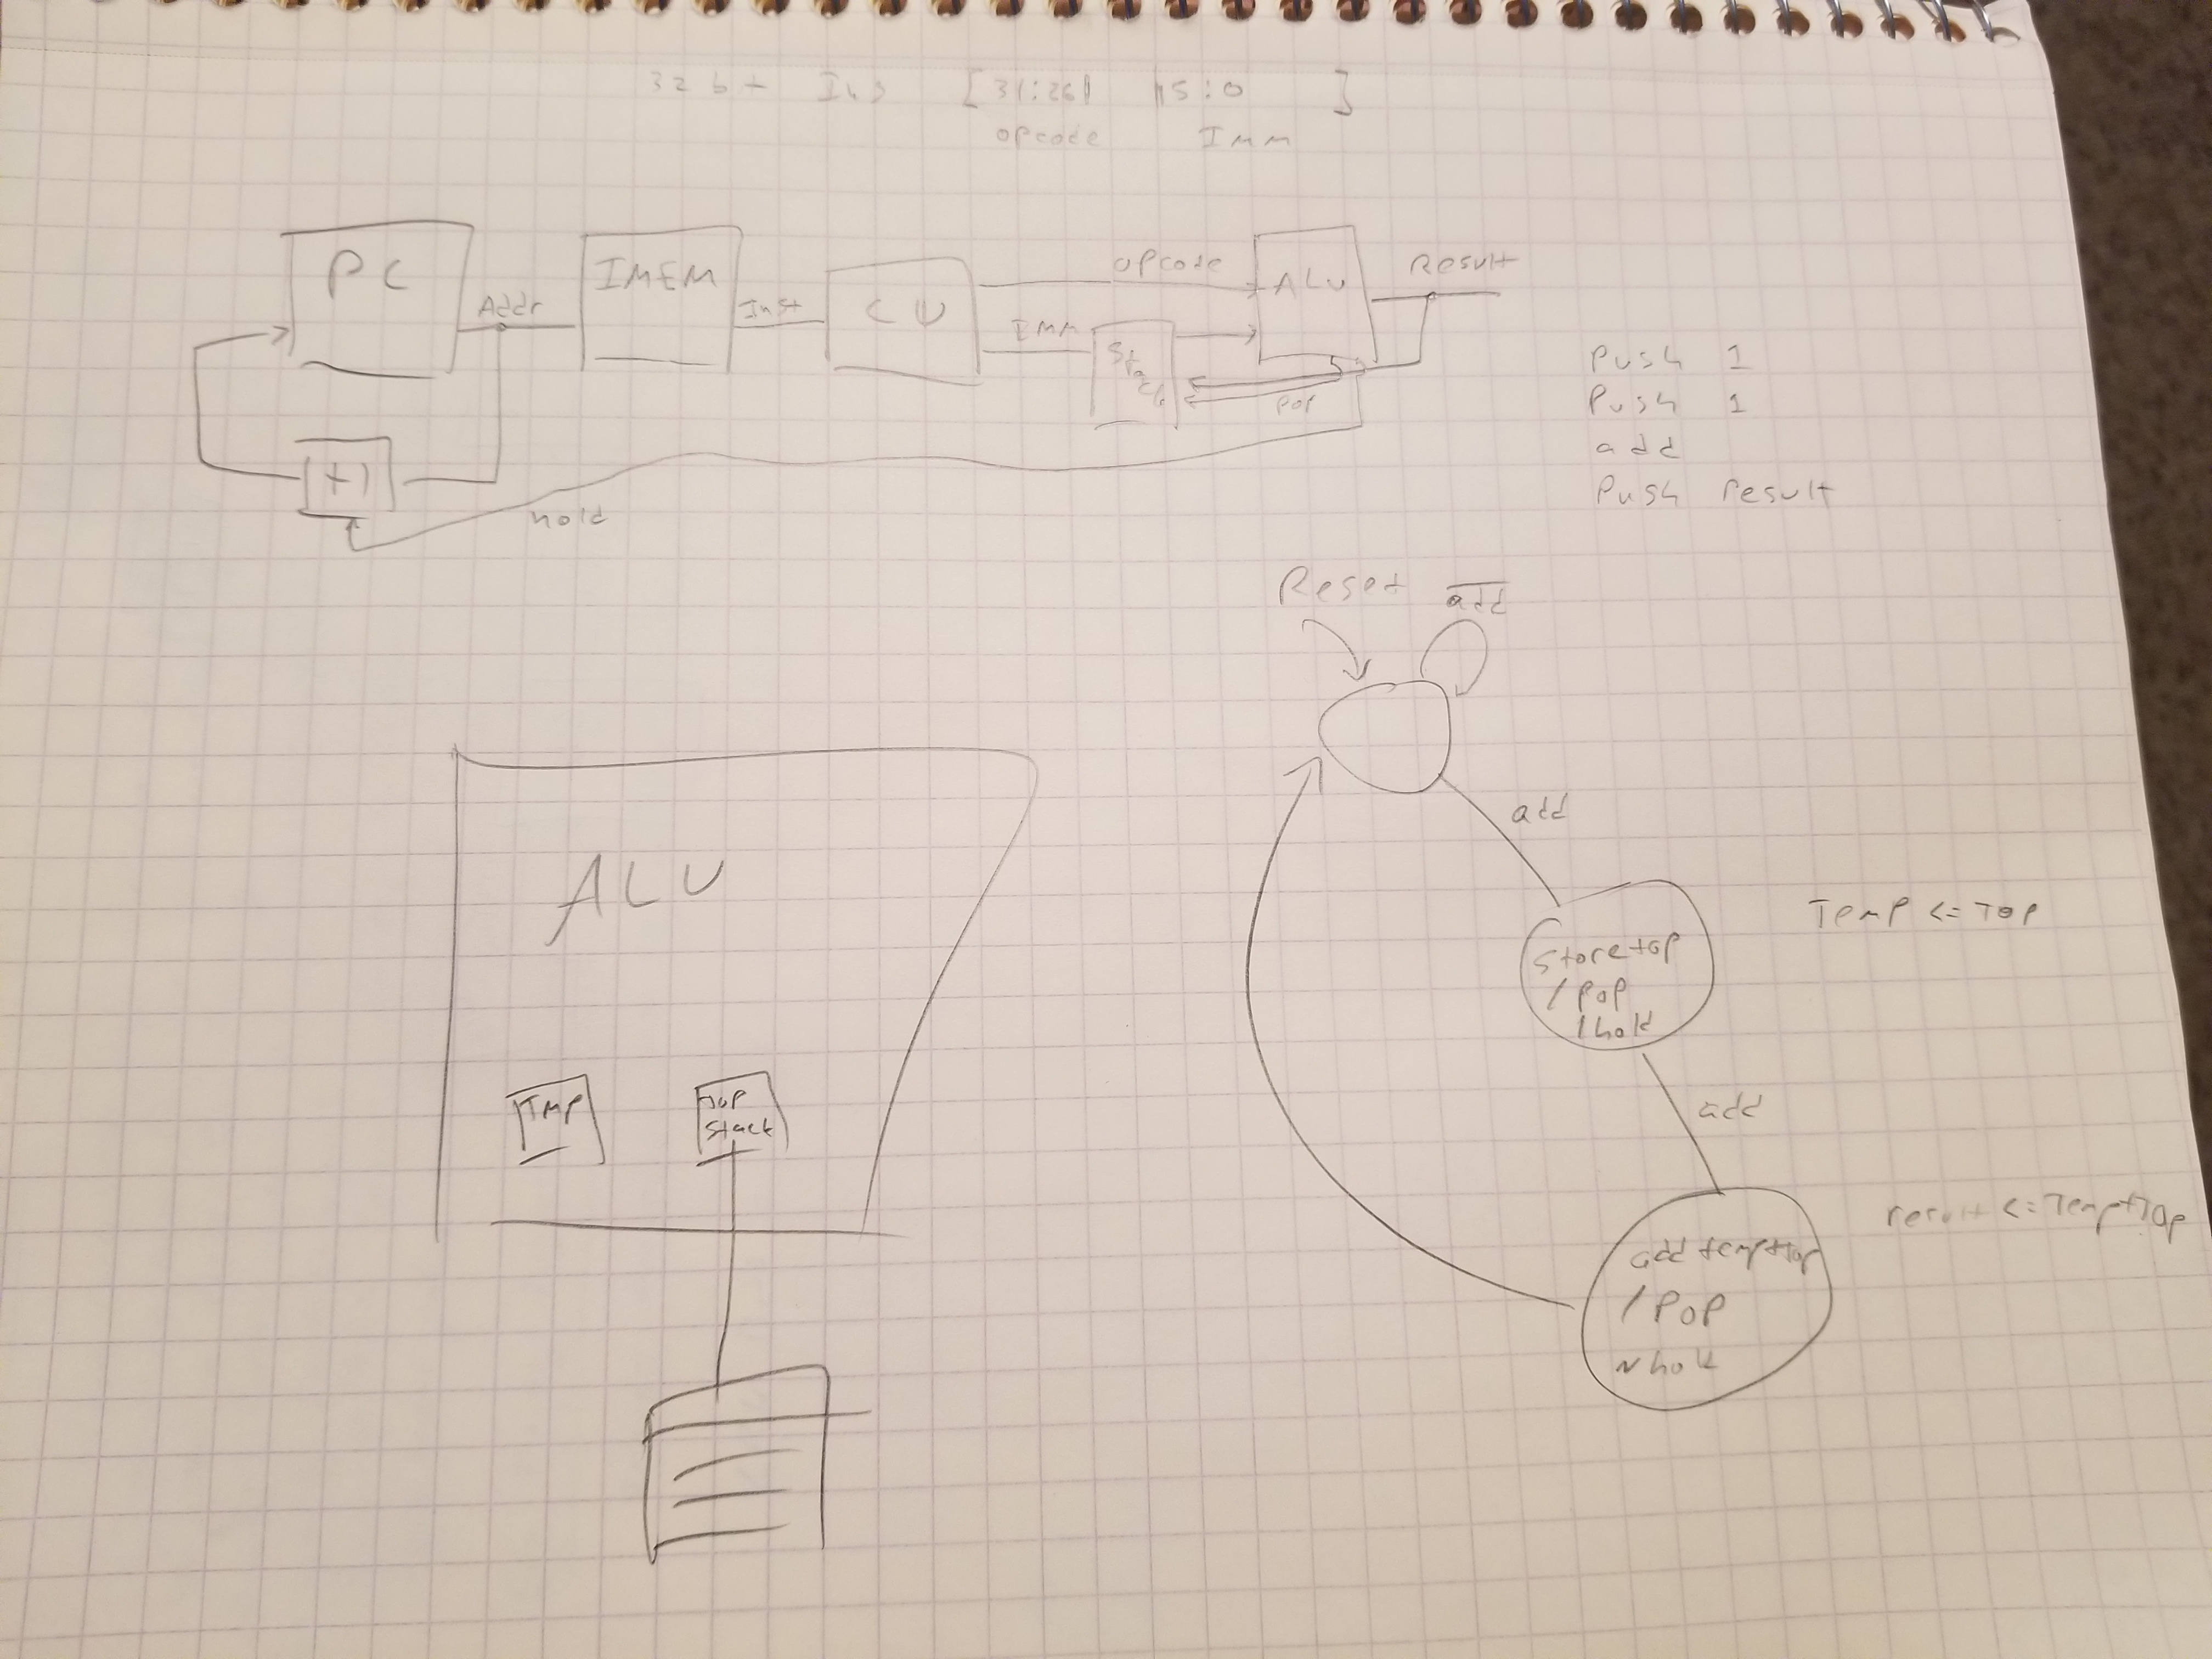 32 bit Ins [31:26| |15:0 ]
opcode Imm
PC
Addr
IMEM
Inst
CU
opcode
IMM
Stack
ALU
Result
POP
+1
hold
Push 1
Push 1
add
Push result
Reset
add
add
Store top
/ POP
/ hold
Temp <= Top
add
add temp+top
/ POP
~ hold
result <= Temp+Top
ALU
TMP
top
stack